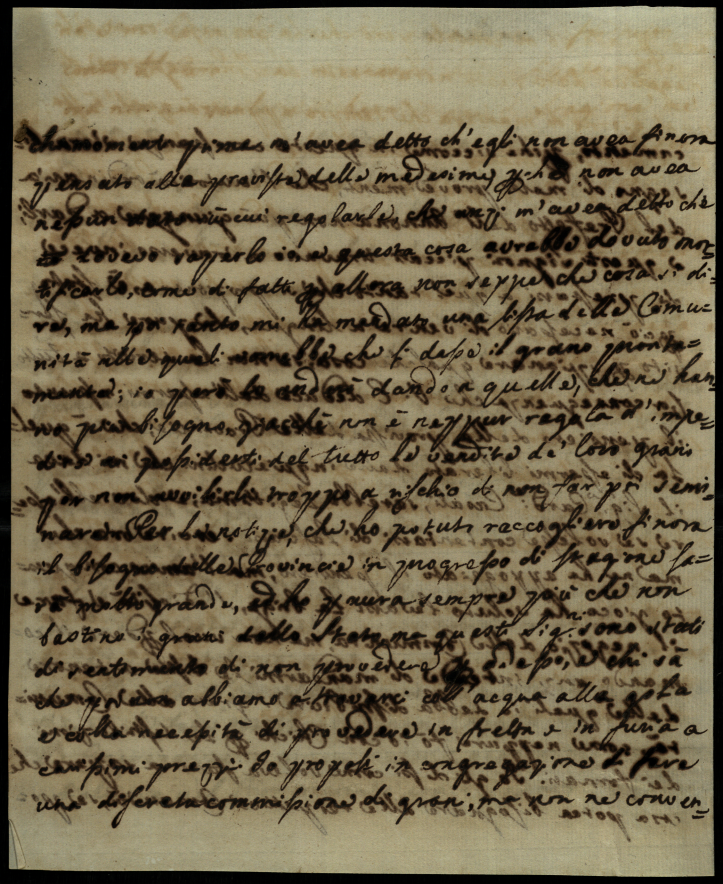 prima m'avea detto ch'egli non avea finora
pensato alla provista delle medesime pchè non avea
nessun regolarle, che anzi m'avea detto che
saperlo questa cosa avrebbe dovuto mor=
tificarlo, come di fatti allora non seppe che cosa si di=
re, ma poi mi ha mandato una lista delle Comu=
nità alle quali vorrebbe che si dasse il grano pronta=
mente; io però le andrò dando a quelle, che ne han=
no più bisogno, giacchè non è neppur regola d'impe=
dire ai possidenti del tutto la vendita de' loro grani
per non avvilirli troppo a rischio di non far poi semi=
nare. Per le notizie, che ho potuto raccogliere finora
il bisogno delle Provincie in progresso di stagione sa=
rà molto grande, ed ho paura sempre più che non
bastino i grani dello Stato, ma questi Sig.ri sono stati
di sentimento di non provedere adesso, e chi sà
che poi non abbiamo a trovarci coll'acqua alla gola
e colla necessità di provedere in fretta e in furia a
carissimi prezzi. Io proposi in congregazione di fare
una discreta commissione di grani; ma non ne conven=